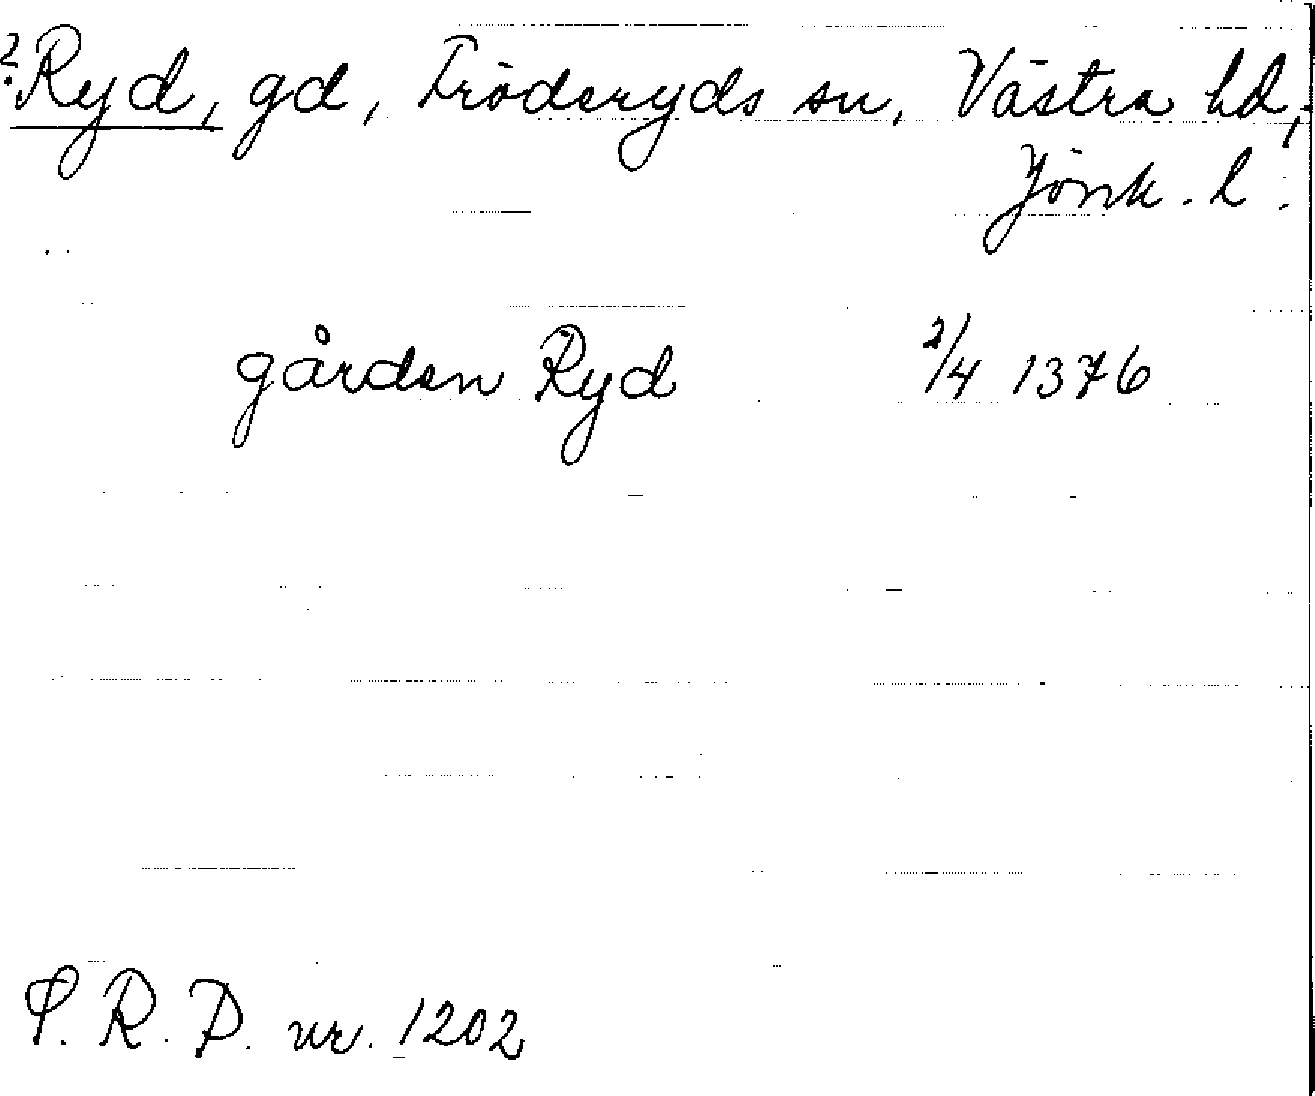 ?Ryd, gd, Fröderyds sn, Västra hd,
Jönk. l.
gården Ryd 2/4 1376
S. R. P. nr. 1202